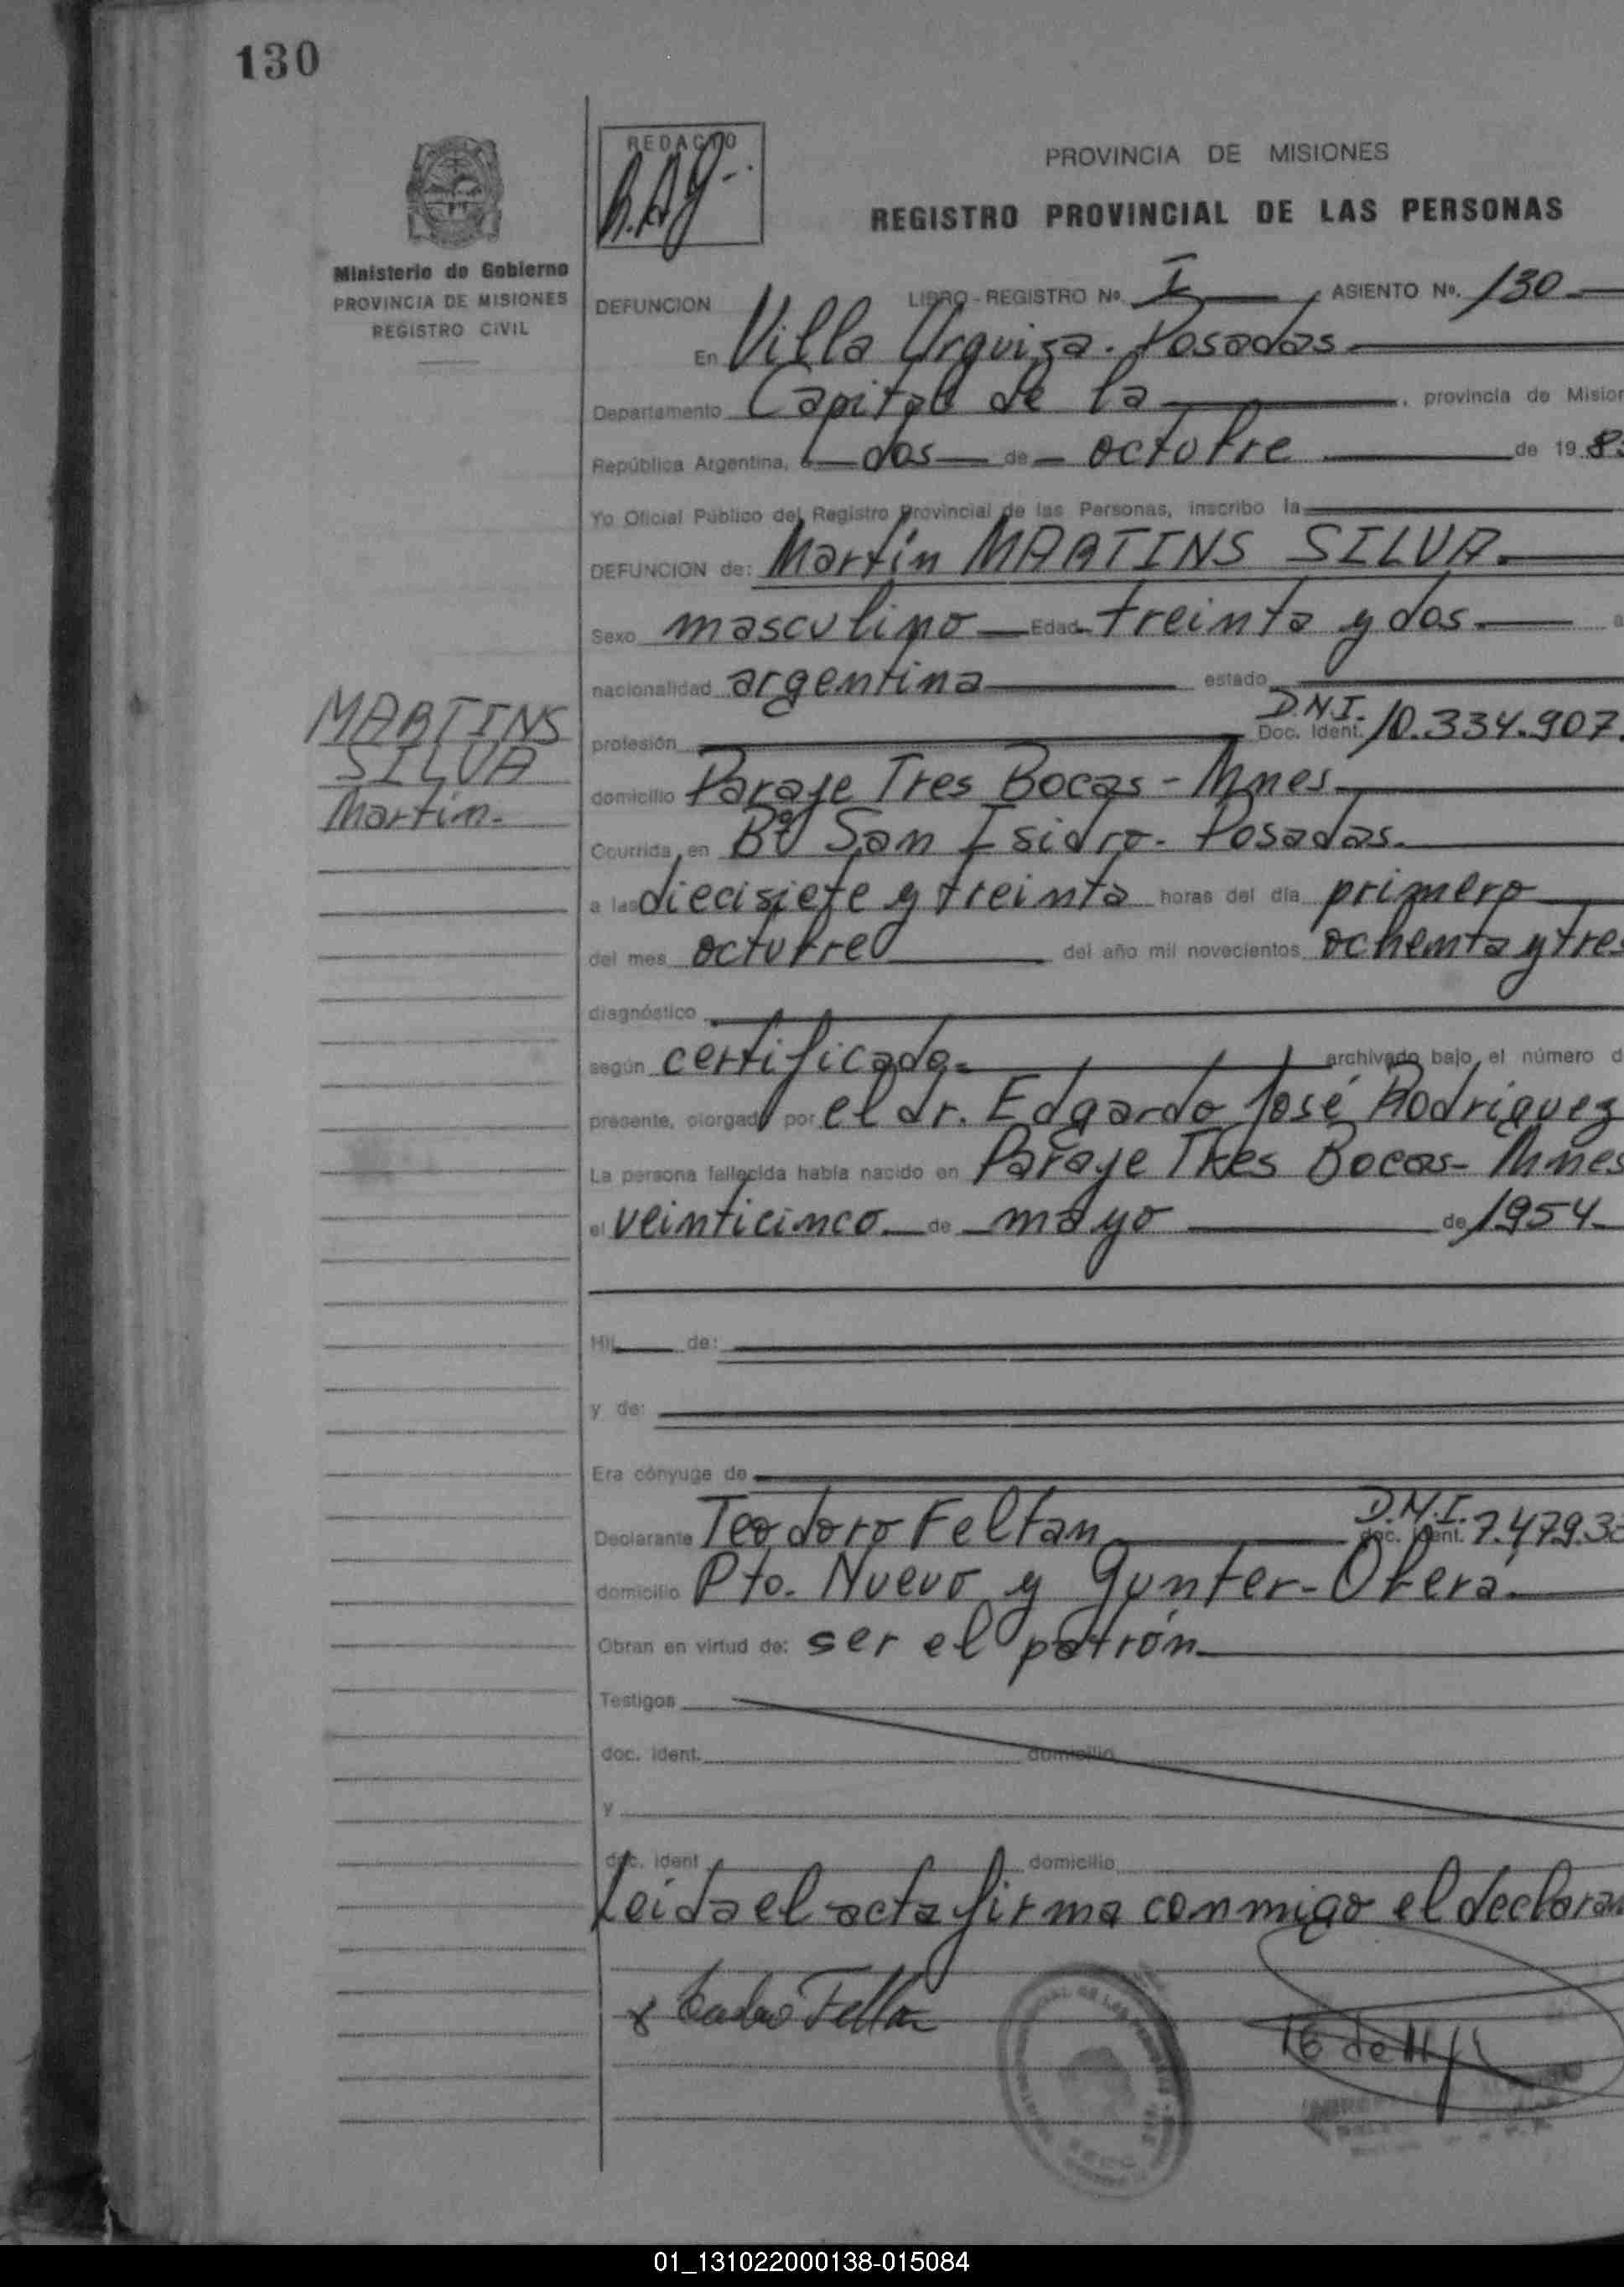 130
REDACTO
PROVINCIA DE MISIONES
REGISTRO PROVINCIAL DE LAS PERSONAS
Ministerio de Gobierno
PROVINCIA DE MISIONES
REGISTRO CIVIL
DEFUNCION LIBRO - REGISTRO No. I ASIENTO No. 130
En Villa Urquiza. Posadas
Departamento Capital de la , provincia de Mision
República Argentina, a dos de octubre de 19 8
Yo Oficial Público del Registro Provincial de las Personas, inscribo la
DEFUNCION de: Martín MARTINS SILVA.
Sexo masculino Edad treinta y dos. a
nacionalidad argentina estado
MARTINS
SILVA
Martín.
D.N.I.
profesión Doc. Ident. 10.334.907.
domicilio Paraje Tres Bocas - Mnes.
Ocurrida en Bº San Isidro. Posadas.
a las diecisiete y treinta horas del día primero
del mes octubre del año mil novecientos ochenta y tres
diagnóstico
según certificado. archivado bajo el número d
presente, otorgado por el dr. Edgardo José Rodriguez
La persona fallecida había nacido en Paraje Tres Bocas - Mnes
el veinticinco de mayo de 1954
Hij de:
y de:
Era cónyuge de
D.N.I.
Declarante Teodoro Feltan doc. ident. 7.479.3
domicilio Pto. Nuevo y Gunter - Oberá.
Obran en virtud de: ser el patrón
Testigos
doc. ident. domicilio
y
doc. ident domicilio
Leida el acta firma conmigo el declaran
01_131022000138-015084